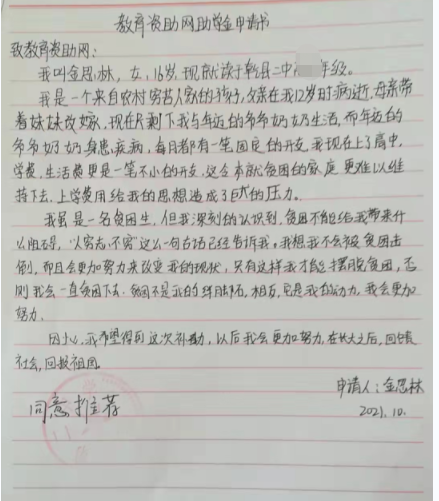 教育资助网助学金申请书
致教育资助网:
我叫金思林,女,16岁,现就读于乾县二中 年级。
我是一个来自农村穷苦人家的孩子,父亲在我12岁时病逝,母亲带
着妹妹改嫁,现在只剩下我与年迈的爷爷奶奶生活,而年迈的
爷爷奶奶身患疾病,每月都有一笔固定的开支,我现在上了高中,
学费、生活费更是一笔不小的开支,这令本就贫困的家庭更难以维
持下去,上学费用给我的思想造成了巨大的压力。
我虽是一名贫困生,但我深刻的认识到,贫困不能给我带来什
么阻碍,“人穷志不穷”这么一句古话已经告诉我,我想我不会被贫困击
倒,而且会更加努力来改变我的现状,只有这样我才能摆脱贫困,否
则我会一直贫困下去。贫困不是我的绊脚石,相反,它是我的动力,我会更加
努力。
因此,我希望得到这次补助,以后我会更加努力,在长大之后,回馈
社会,回报祖国。
申请人:金思林
同意推荐
2021.10.